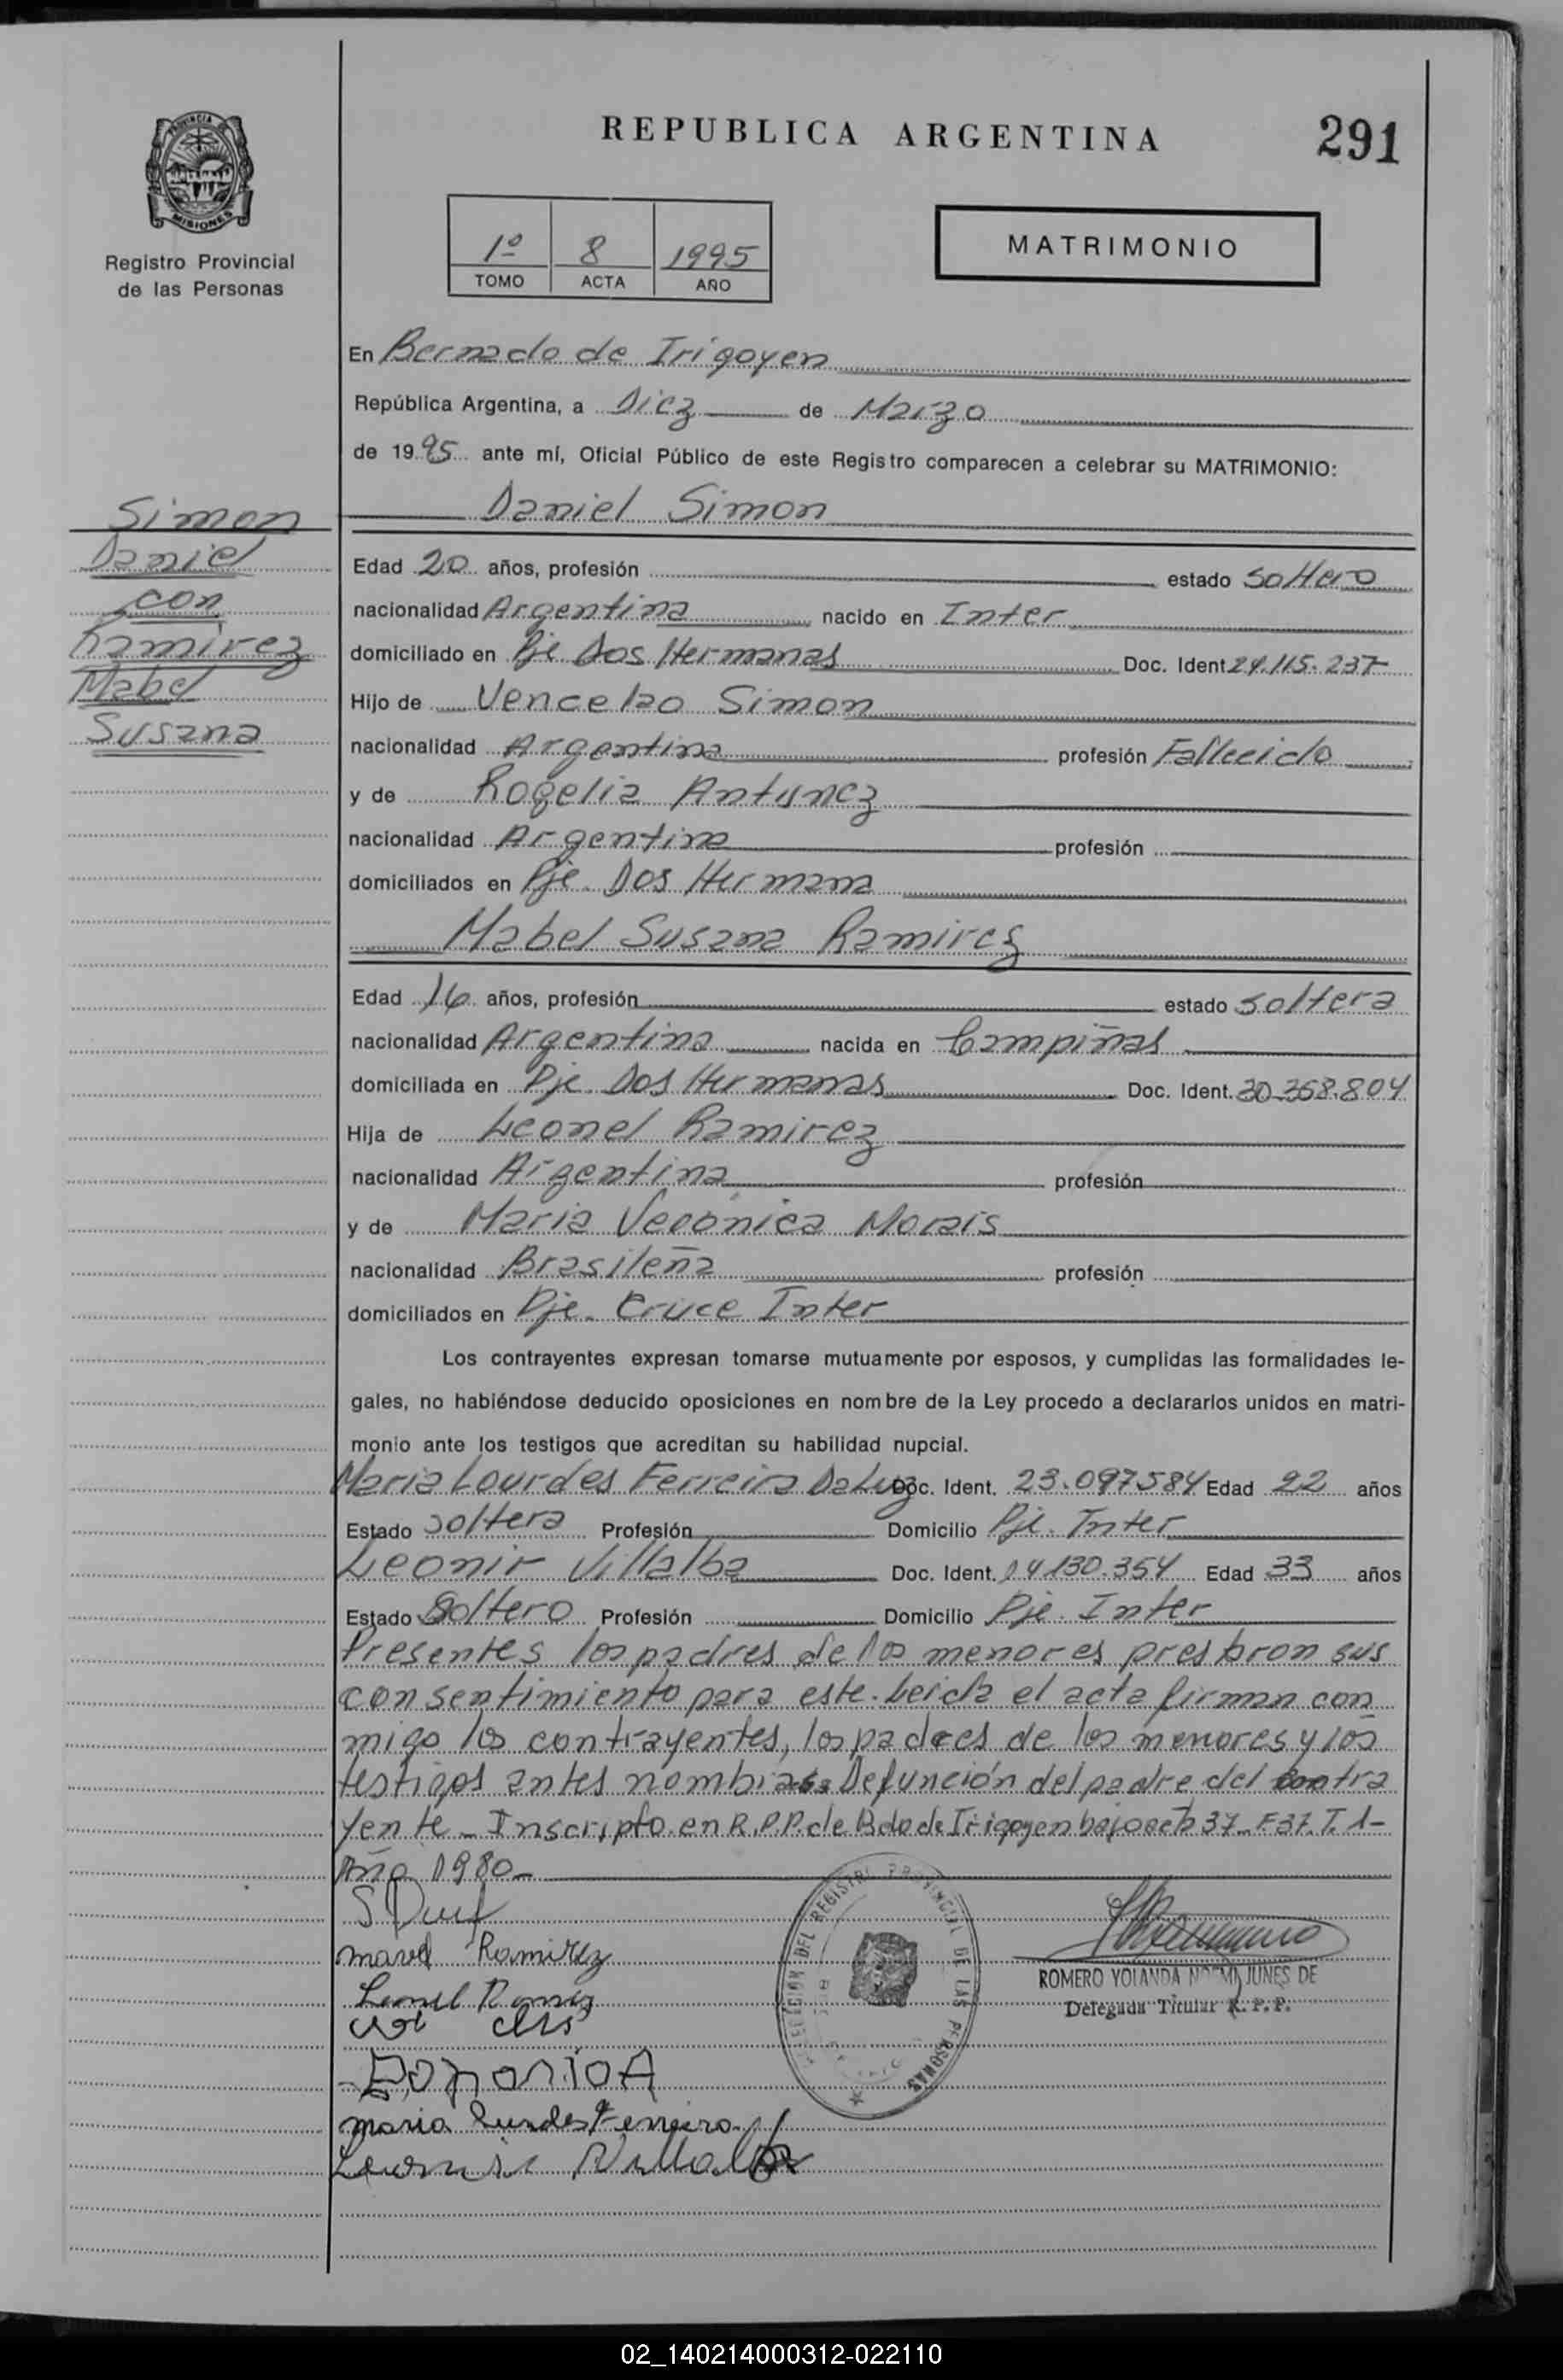 REPUBLICA ARGENTINA
291
PROVINCIA
MISIONES
Registro Provincial
de las Personas
1º 8 1995
TOMO ACTA AÑO
MATRIMONIO
En Bernado de Irigoyen
República Argentina, a Diez de Marzo
de 1995 ante mí, Oficial Público de este Registro comparecen a celebrar su MATRIMONIO:
Simon
Daniel
con
Ramirez
Mabel
Susana
Daniel Simon
Edad 20 años, profesión estado soltero
nacionalidad Argentina nacido en Inter
domiciliado en Pje Dos Hermanas Doc. Ident 24.115.237
Hijo de Vencelao Simon
nacionalidad Argentina profesión Fallecido
y de Rogelia Antunez
nacionalidad Argentina profesión
domiciliados en Pje. Dos Hermana
Mabel Susana Ramirez
Edad 16 años, profesión estado soltera
nacionalidad Argentina nacida en Campiñas
domiciliada en Pje Dos Hermanas Doc. Ident. 30.368.804
Hija de Leonel Ramirez
nacionalidad Argentina profesión
y de Maria Verónica Morais
nacionalidad Brasileña profesión
domiciliados en Pje. Cruce Inter
Los contrayentes expresan tomarse mutuamente por esposos, y cumplidas las formalidades le-
gales, no habiéndose deducido oposiciones en nombre de la Ley procedo a declararlos unidos en matri-
monio ante los testigos que acreditan su habilidad nupcial.
Maria Lourdes Ferreira DaLuz Doc. Ident. 23.097584 Edad 22 años
Estado soltera Profesión Domicilio Pje. Inter
Leonir Villalba Doc. Ident. 14130.354 Edad 33 años
Estado Soltero Profesión Domicilio Pje. Inter
Presentes los padres de los menores prestaron sus
consentimiento para este. Leida el acta firman con
migo los contrayentes, los padres de los menores y los
testigos antes nombra Defunción del padre del contra
yente - Inscripto en R.P.P. de Bdo de Irigoyen bajo acta 37 - F 37. T. 1-
Año 1980-
mavel Ramirez
maria Lurdes Ferreira
Leonir Villalba
DEL REGISTRO PROVINCIAL DE LAS PERSONAS
ROMERO YOLANDA NOEMI JUNES DE
Delegada Titular R.P.P.
02_140214000312-022110